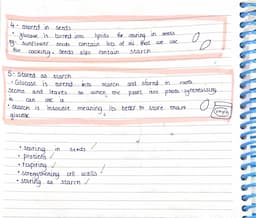 4 - stored in seeds
• glucose is turned into lipids for storing in seeds
eg sunflower seeds contain lots of oil that we use
for cooking. Seeds also contain starch
5 - Stored as starch
• Glucose is turned into starch and stored in roots
stems and leaves so when the plant isn't photosynthesising
it can use it
• Starch is insoluble meaning its better to store than
glucose
• storing in seeds ✓
• proteins ✓
• respiring ✓
• strengthening cell walls ✓
• storing as starch ✓